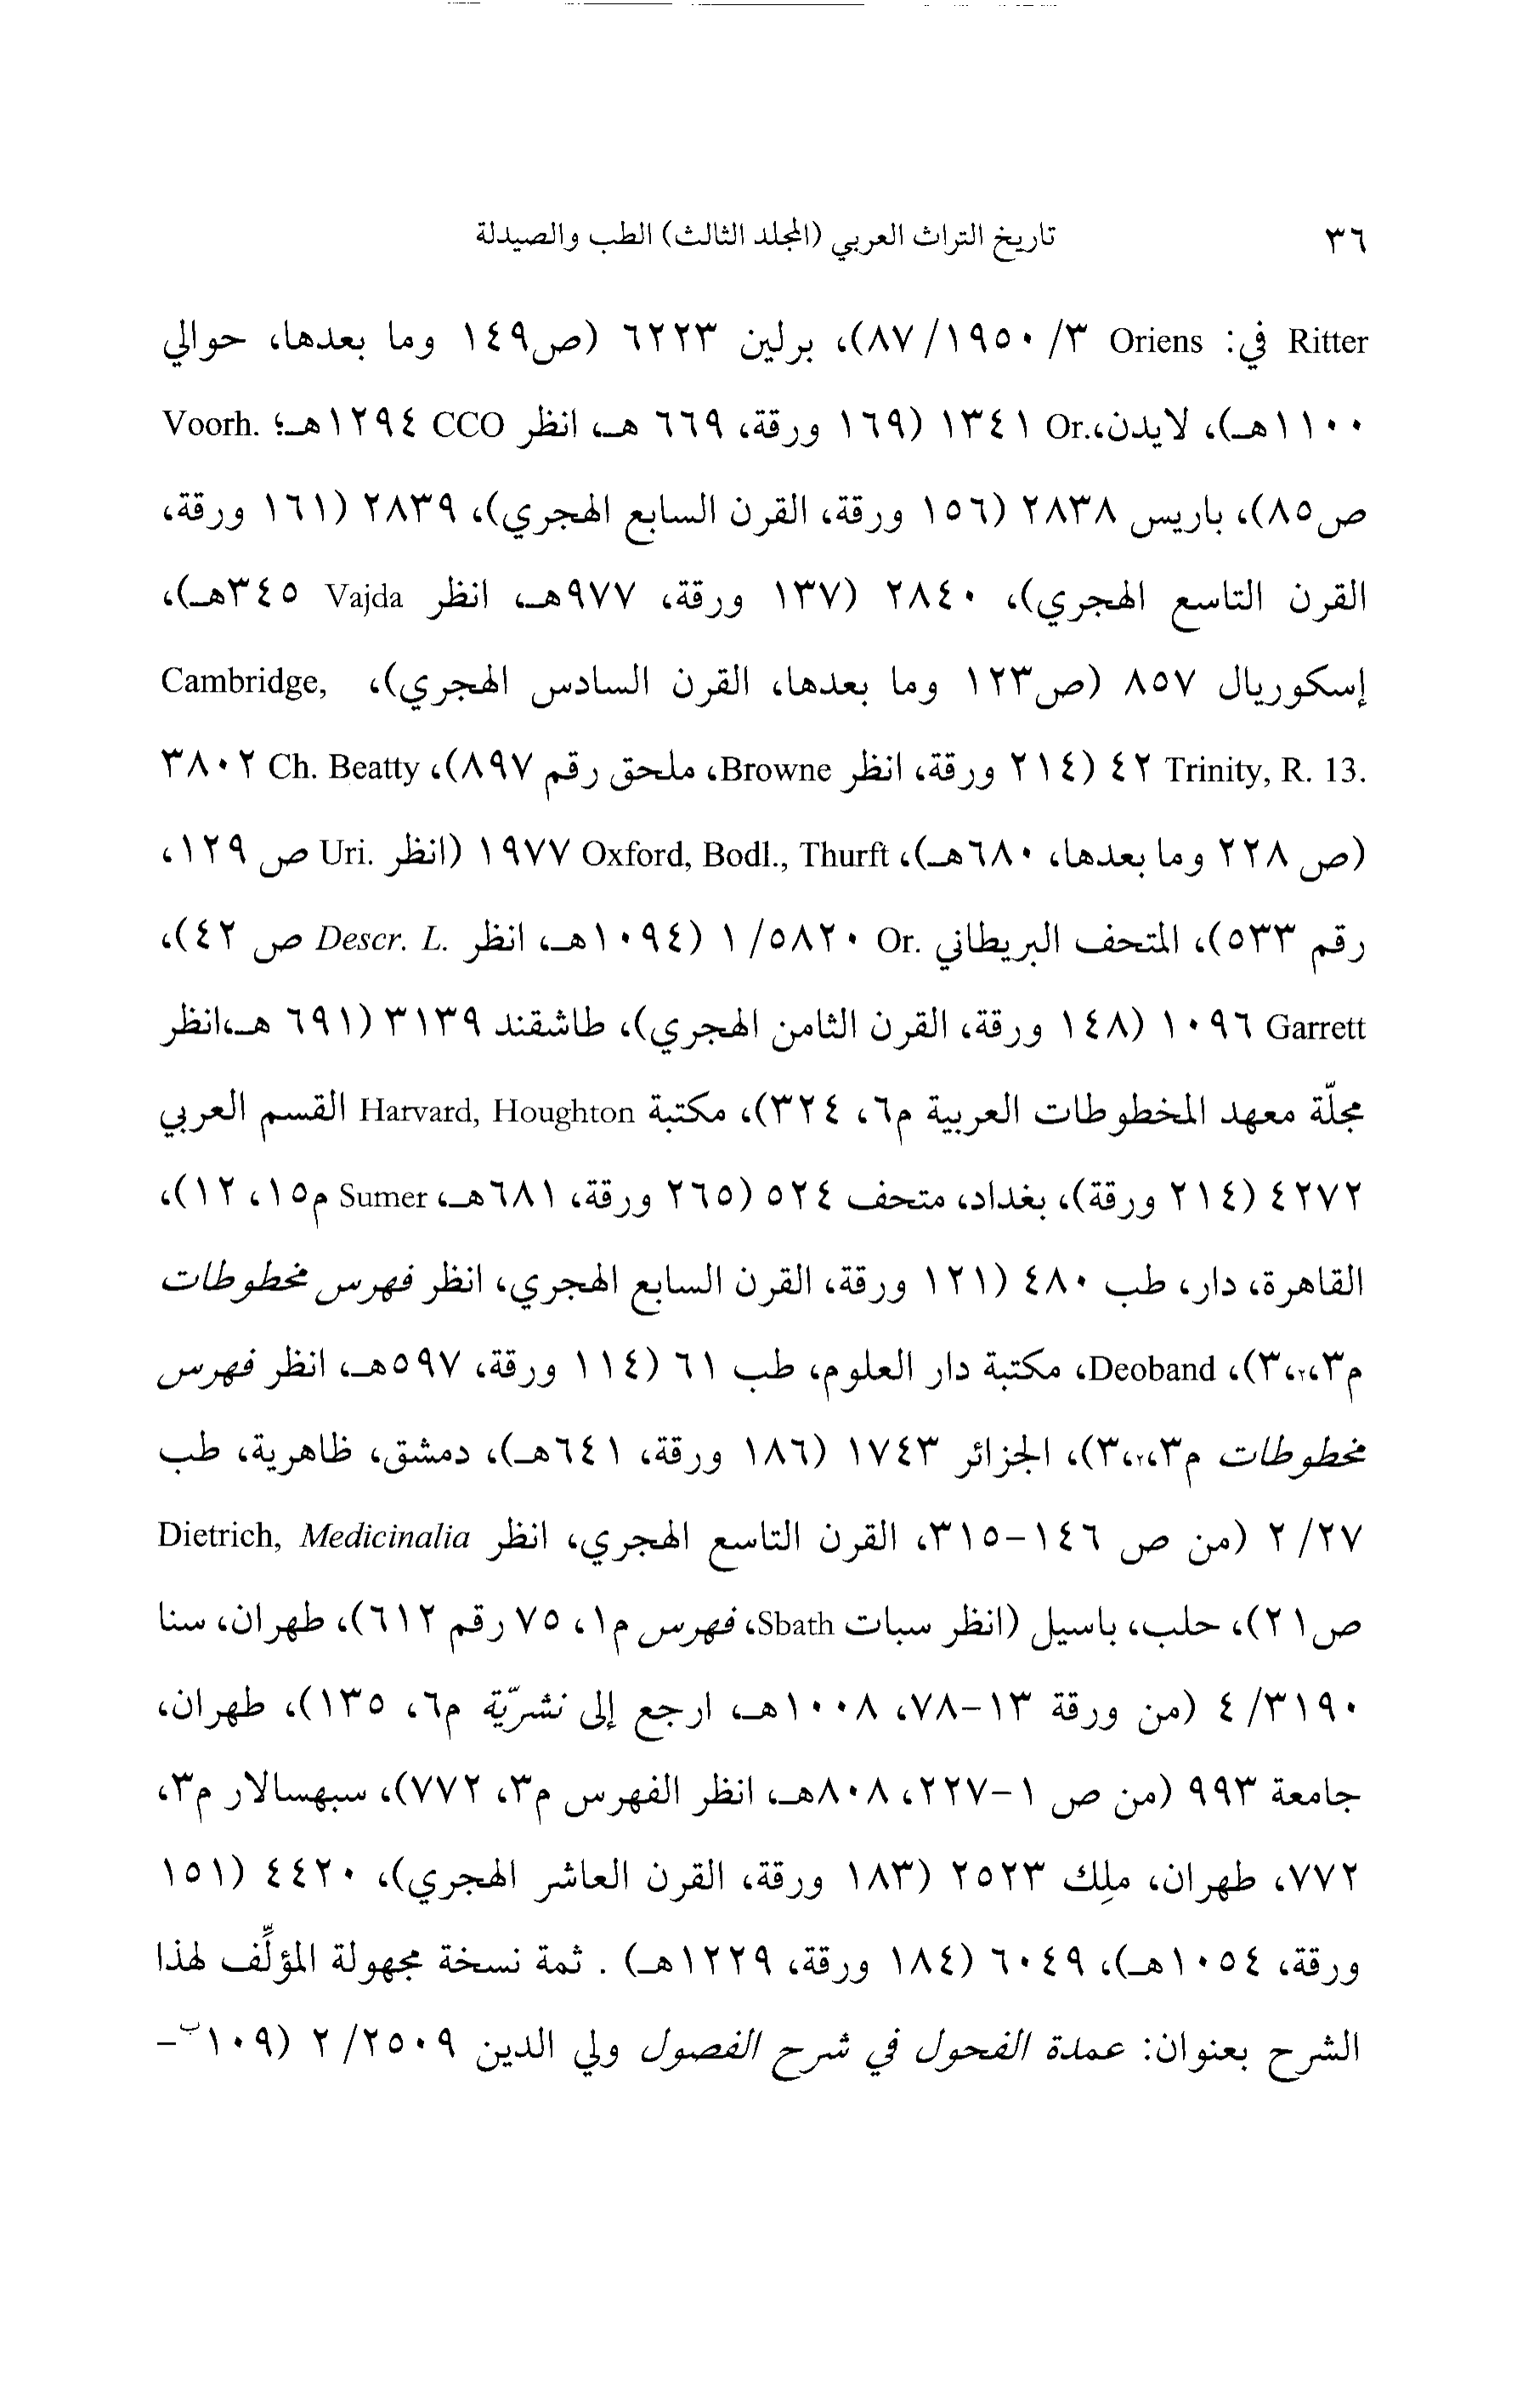 ٣٦ تاريخ التراث العربي (المجلد الثالث) الطب والصيدلة
Ritter في: Oriens ٣/ ١٩٥٠/ ٨٧)، برلين ٦٢٢٣ (ص١٤٩ وما بعدها، حوالي
١١٠٠هـ)، لايدن،Or. ١٣٤١ (١٦٩ ورقة، ٦٦٩ هـ، انظر CCO ١٢٩٤هـ؛ Voorh.
ص٨٥)، باريس ٢٨٣٨ (١٥٦ ورقة، القرن السابع الهجري)، ٢٨٣٩ (١٦١ ورقة،
القرن التاسع الهجري)، ٢٨٤٠ (١٣٧ ورقة، ٩٧٧هـ، انظر Vajda ٣٤٥هـ)،
إسكوريال ٨٥٧ (ص١٢٣ وما بعدها، القرن السادس الهجري)، Cambridge,
Trinity, R. 13. ٤٢ (٢١٤ ورقة، انظر Browne، ملحق رقم ٨٩٧)، Ch. Beatty ٣٨٠٢
(ص ٢٢٨ وما بعدها، ٦٨٠هـ)، Oxford, Bodl., Thurft ١٩٧٧ (انظر Uri. ص ١٢٩،
رقم ٥٣٣)، المتحف البريطاني Or. ٥٨٢٠/ ١ (١٠٩٤هـ، انظر Descr. L. ص ٤٢)،
Garrett ١٠٩٦ (١٤٨ ورقة، القرن الثامن الهجري)، طاشقند ٣١٣٩ (٦٩١ هـ،انظر
مجلّة معهد المخطوطات العربية م٦، ٣٢٤)، مكتبة Harvard, Houghton القسم العربي
٤٢٧٢ (٢١٤ ورقة)، بغداد، متحف ٥٢٤ (٢٦٥ ورقة، ٦٨١هـ، Sumer م١٥، ١٢)،
القاهرة، دار، طب ٤٨٠ (١٢١ ورقة، القرن السابع الهجري، انظر فهرس مخطوطات
م٣،٢،٣)، Deoband، مكتبة دار العلوم، طب ٦١ (١١٤ ورقة، ٥٩٧هـ، انظر فهرس
مخطوطات م٣،٢،٣)، الجزائر ١٧٤٣ (١٨٦ ورقة، ٦٤١هـ)، دمشق، ظاهرية، طب
٢٧/ ٢ (من ص ١٤٦-٣١٥، القرن التاسع الهجري، انظر Dietrich, Medicinalia
ص٢١)، حلب، باسيل (انظر سبات Sbath، فهرس م١، ٧٥ رقم ٦١٢)، طهران، سنا
٣١٩٠/ ٤ (من ورقة ١٣-٧٨، ١٠٠٨هـ، ارجع إلى نشريّة م٦، ١٣٥)، طهران،
جامعة ٩٩٣ (من ص ١-٢٢٧، ٨٠٨هـ، انظر الفهرس م٣، ٧٧٢)، سبهسالار م٣،
٧٧٢، طهران، ملِك ٢٥٢٣ (١٨٣ ورقة، القرن العاشر الهجري)، ٤٤٢٠ (١٥١
ورقة، ١٠٥٤هـ)، ٦٠٤٩ (١٨٤ ورقة، ١٢٢٩هـ) . ثمة نسخة مجهولة المؤلِّف لهذا
الشرح بعنوان: عمدة الفحول في شرح الفصول ولي الدين ٢٥٠٩/ ٢ (١٠٩ب-